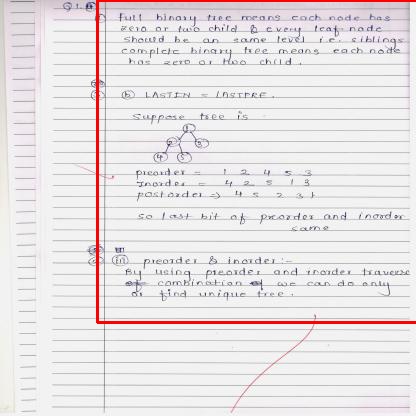 Q1.
full binary tree means each node has
zero or two child & every leaf node
should be an same level i.e. siblings
complete binary tree means each node
has zero or two child.
(b) LASTIN = LASTPRE.
Suppose tree is
1
2 3
4 5
preorder = 1 2 4 5 3
Inorder = 4 2 5 1 3
postorder => 4 5 2 3 1
so last bit of preorder and inorder
same
(iii) preorder & inorder :-
By using preorder and inorder traverse
combination of we can do only
or find unique tree.